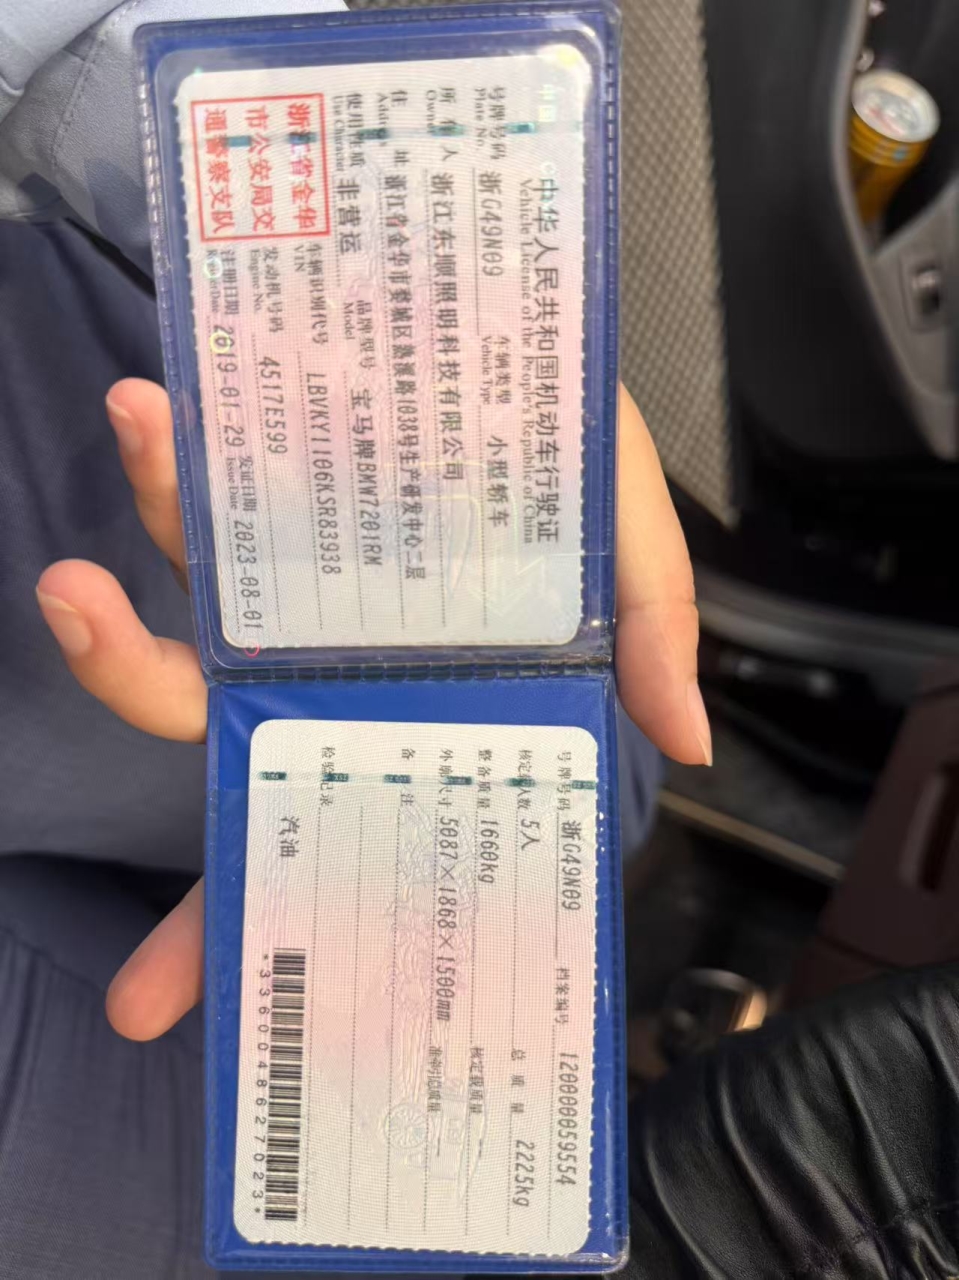 中华人民共和国机动车行驶证
Vehicle License of the People's Republic of China
号牌号码 浙G49N09 车辆类型 小型轿车
Plate No. Vehicle Type
所有人 浙江东顺照明科技有限公司
Owner
住址 浙江省金华市婺城区熟溪路1038号生产研发中心二层
Address
使用性质 非营运 品牌型号 宝马牌BMW7201RM
Use Character Model
浙江省金华
市公安局交
通警察支队
车辆识别代号 LBVKY1106KSR83938
VIN
发动机号码 4517E599
Engine No.
注册日期 2019-01-29 发证日期 2023-08-01
Register Date Issue Date
号牌号码 浙G49N09 档案编号 120000059554
核定载人数 5人 总质量 2225kg
整备质量 1660kg 核定载质量 —
外廓尺寸 5087×1868×1500mm 准牵引总质量 —
备注
检验记录
汽油
*3360048627023*